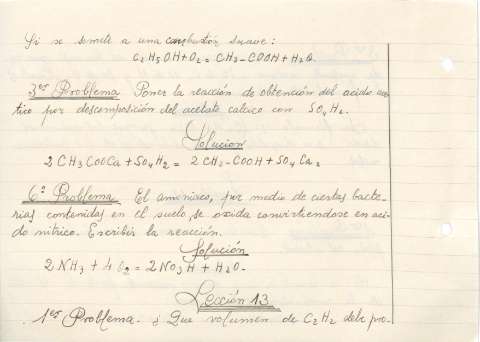 Si se somete a una combustión suave:
C₂H₅OH+O₂ = CH₃-COOH+H₂O.
3er Problema Poner la reacción de obtención del acido ace-
tico por descomposición del acetato calcico con SO₄H₂.
Solucion
2 CH₃COOCa + SO₄H₂ = 2 CH₃-COOH + SO₄Ca.
6º Problema. El amoniaco, por medio de ciertas bacte-
rias contenidas en el suelo, se oxida convirtiendose en aci-
do nitrico. Escribir la reacción.
Solución
2 NH₃ + 4 O₂ = 2 NO₃H + H₂O.
Lección 13
1er Problema. ¿ Que volumen de C₂H₂ debe pro-